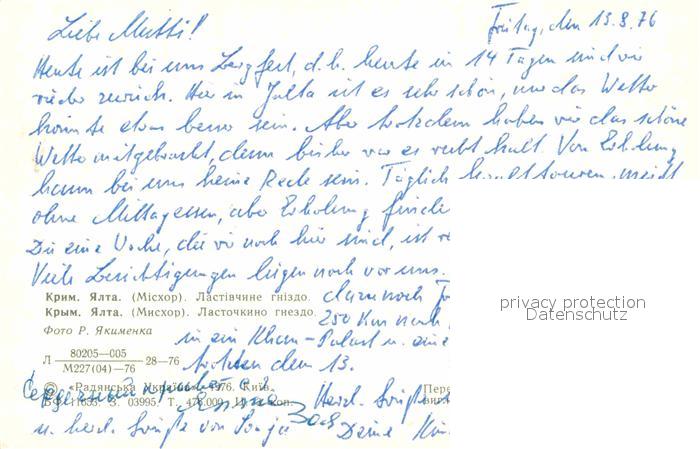 Freitag, den 13.8.76
Liebe Mutti!
Heute ist bei uns Bergfest, d.h. heute in 14 Tagen sind wir
wieder zurück. Hier in Jalta ist es sehr schön, nur das Wetter
könnte etwas besser sein. Aber trotzdem haben wir das schöne
Wetter mitgebracht, denn bisher war es recht kalt. Von Erholung
kann bei uns keine Rede sein. Täglich meist
ohne Mittagessen, aber Erholung
Die eine Woche, die wir noch hier sind, ist
Viele Besichtigungen liegen noch vor uns.
Крим. Ялта. (Місхор). Ластівчине гніздо.
Крым. Ялта. (Мисхор). Ласточкино гнездо.
dann noch
250 Km nach
Фото Р. Якименка
in ein Khan-Palast u. eine
Л 80205—005 28—76
М227(04)—76
trotzdem 13.
© «Радянська Україна». 1976. Київ.
БФ 11653. З. 03995. Т. 476.000. Ц. коп.
Пере
Herzl. Grüße
u. herzl. Grüße von Sonja
Deine
privacy protection
Datenschutz